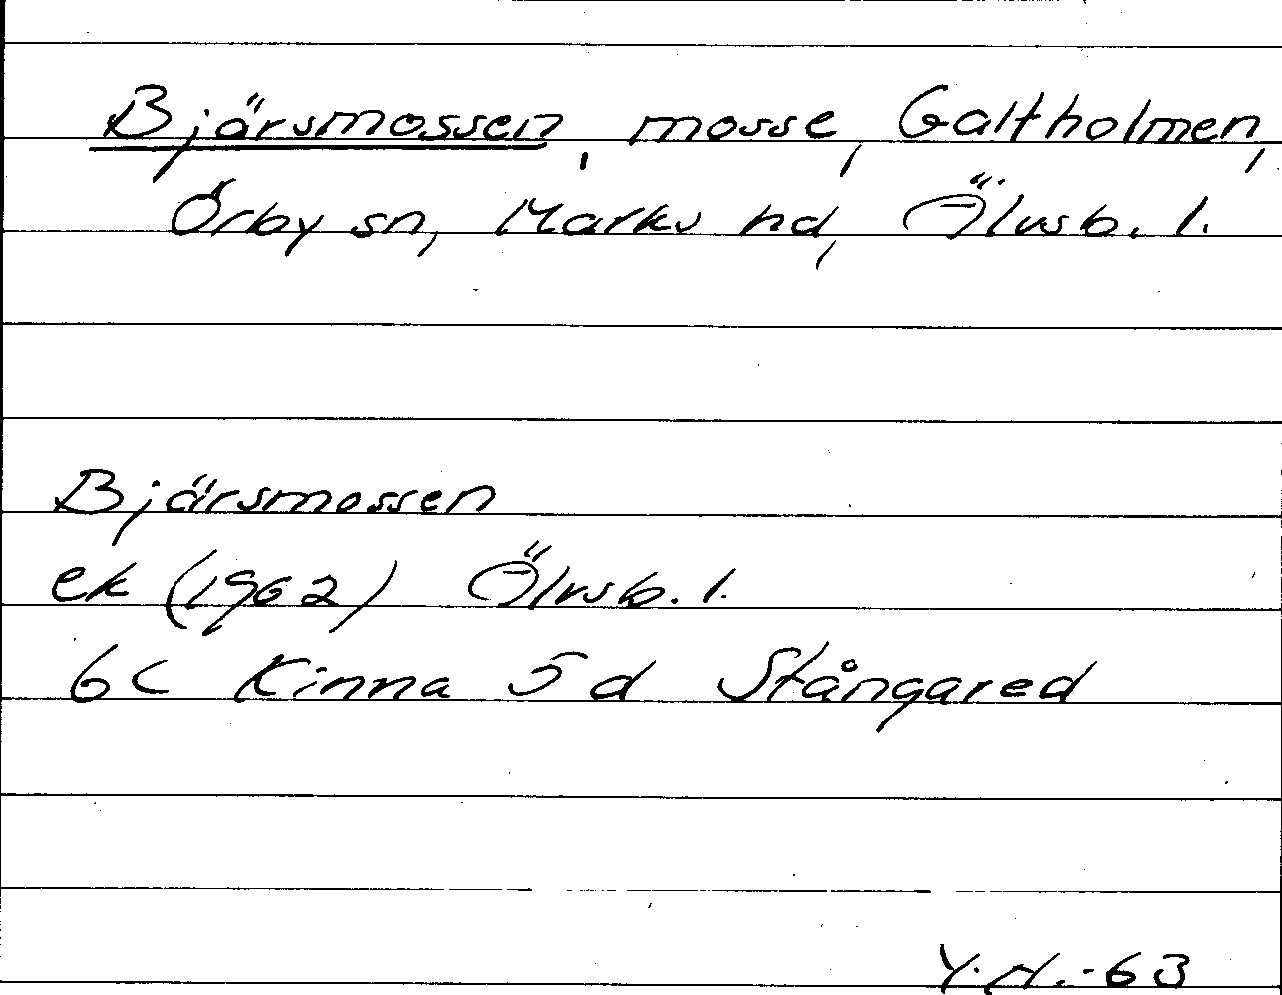 Bjärsmossen, mosse, Galtholmen,
Örby sn, Marks hd, Älvsb. l.
Bjärsmossen
ek (1962) Älvsb. l.
6c Kinna 5 d Stångared
Y.H.-63